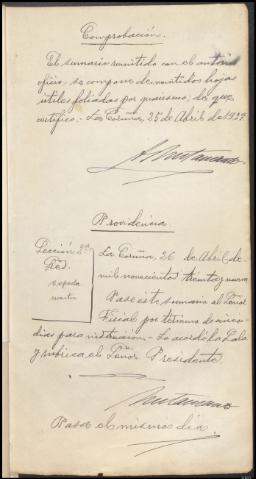 Comprobación.
El sumario remitido con el anterior
oficio, se compone de veintidos hojas
útiles foliadas por guarismo, de que
certifico.- La Coruña, 25 de Abril de 1939
Providencia.
Sección 2ª
La Coruña, 26 de Abril de
mil novecientos treinta y nueve
Pase este sumario al Señor
Fiscal por término de cinco
dias para instrucción.- Lo acordó la Sala
y rubrica el Señor Presidente
Pasa el mismo dia.